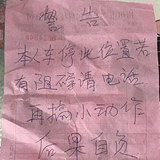 警告
本人车停此位置若
有阻碍请电话
再搞小动作
后果自负